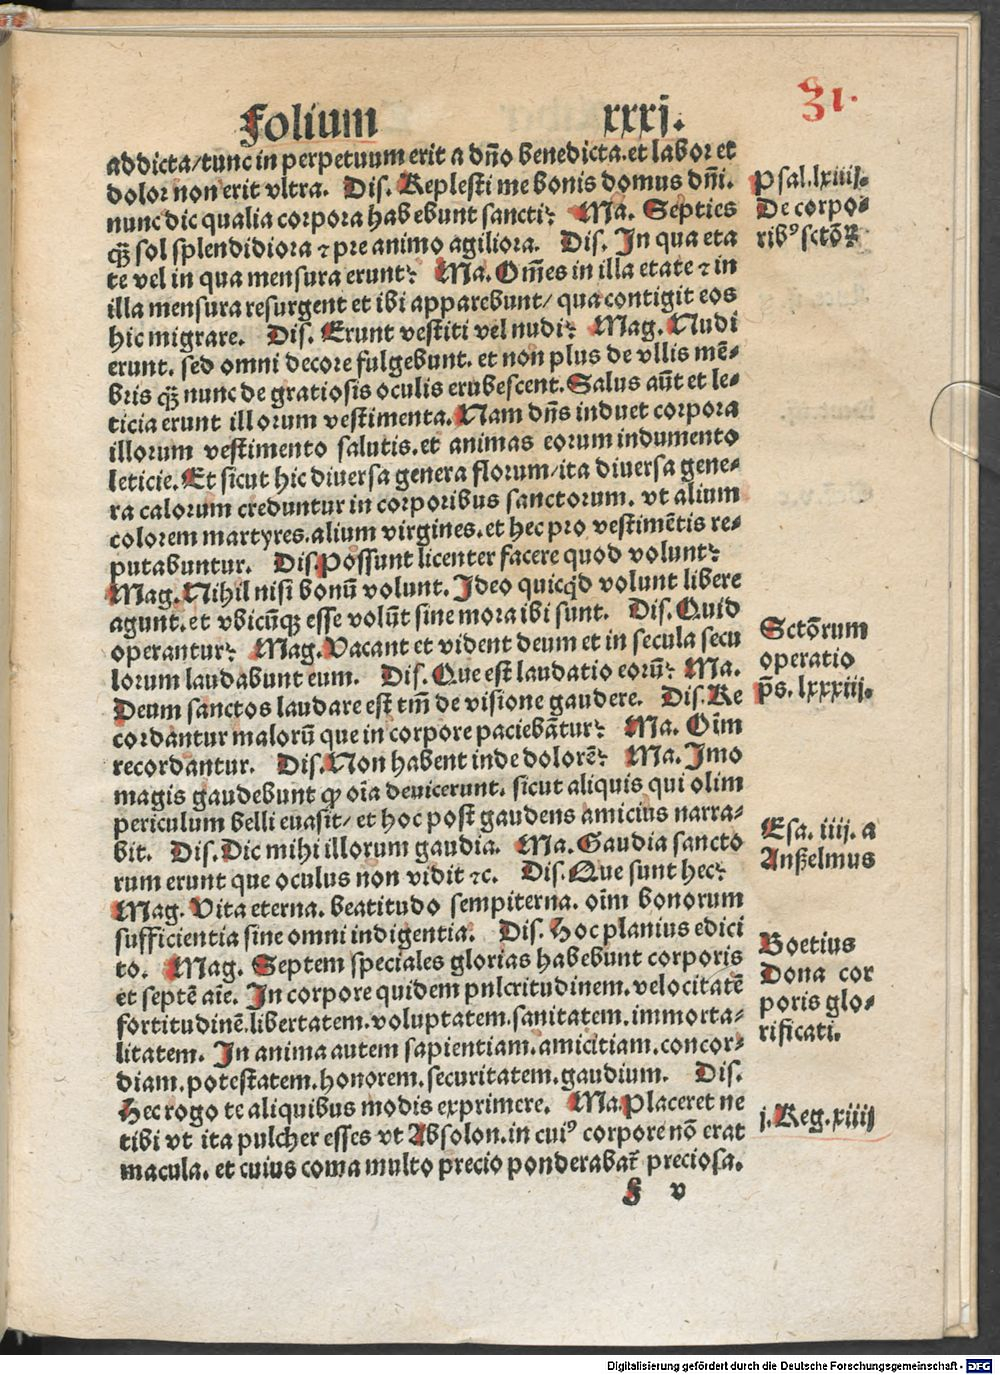 31.
Folium xxxj.
addicta/tunc in perpetuum erit a dño benedicta.et labor et
dolor non erit vltra. Dis. Replesti me bonis domus dñi.
nunc dic qualia corpora habebunt sancti? Ma. Septies
q̄ȝ sol splendidiora ⁊ pre animo agiliora. Dis. In qua eta
te vel in qua mensura erunt? Ma. Om̄es in illa etate ⁊ in
illa mensura resurgent et ibi apparebunt/ qua contigit eos
hic migrare. Dis. Erunt vestiti vel nudi? Mag. Nudi
erunt. sed omni decore fulgebunt. et non plus de vllis mē-
bris q̄ȝ nunc de gratiosis oculis erubescent. Salus aūt et le-
ticia erunt illorum vestimenta. Nam dñs induet corpora
illorum vestimento salutis.et animas eorum indumento
leticie. Et sicut hic diuersa genera florum/ita diuersa gene-
ra calorum creduntur in corporibus sanctorum. vt alium
colorem martyres.alium virgines.et hec pro vestimētis re-
putabuntur. Dis. Possunt licenter facere quod volunt?
Mag. Nihil nisi bonū volunt. Ideo quicq̄d volunt libere
agunt.et vbicūqȝ esse volūt sine mora ibi sunt. Dis. Quid
operantur? Mag. Vacant et vident deum et in secula secu
lorum laudabunt eum. Dis. Que est laudatio eorū? Ma.
Deum sanctos laudare est tm̄ de visione gaudere. Dis. Re
cordantur malorū que in corpore paciebātur? Ma. Oīm
recordantur. Dis. Non habent inde dolorē? Ma. Imo
magis gaudebunt ꝙ oīa deuicerunt. sicut aliquis qui olim
periculum belli euasit/ et hoc post gaudens amicius narra-
bit. Dis. Dic mihi illorum gaudia. Ma. Gaudia sancto
rum erunt que oculus non vidit ⁊c. Dis. Que sunt hec?
Mag. Vita eterna. beatitudo sempiterna. oīm bonorum
sufficientia sine omni indigentia. Dis. Hoc planius edici
to. Mag. Septem speciales glorias habebunt corporis
et septē aīe. In corpore quidem pulcritudinem.velocitatē
fortitudinē.libertatem.voluptatem.sanitatem.immorta-
litatem. In anima autem sapientiam.amicitiam.concor-
diam.potestatem.honorem.securitatem.gaudium. Dis.
Hec rogo te aliquibus modis exprimere. Ma. Placeret ne
tibi vt ita pulcher esses vt Absolon.in cuiꝰ corpore nō erat
macula. et cuius coma multo precio ponderabat̄ preciosa.
F v
Psal.lxiiij.
De corpo-
ribꝰ sctōꝝ
Sctōrum
operatio
p̄s. lxxxiij.
Esa. iiij. a
Anßelmus
Boetius
Dona cor
poris glo-
rificati.
j. Reg.xiiij
Digitalisierung gefördert durch die Deutsche Forschungsgemeinschaft - DFG